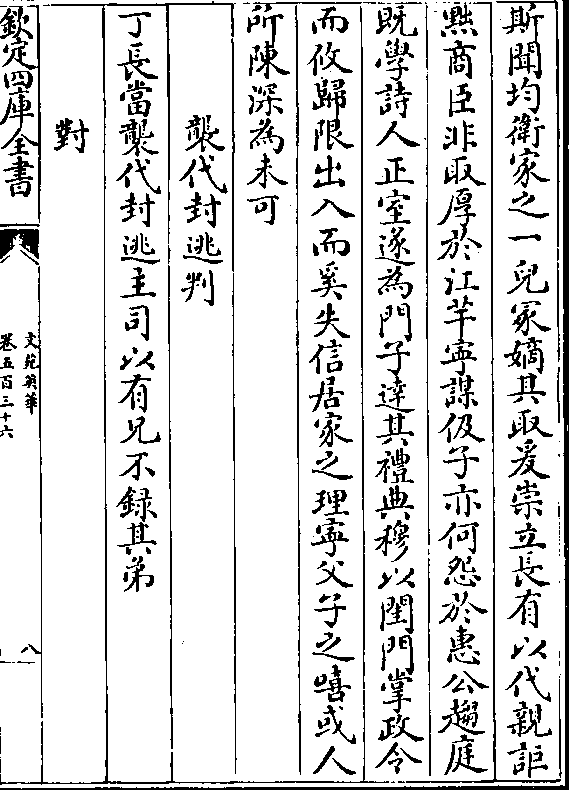 斯聞均衛家之一兒冢嫡其取爰崇立長有以代親詎
黜商臣非取厚於江芊寧謀伋子亦何怨於惠公趨庭
既學詩人正室遂為門子達其禮典穆以閨門掌政令
而攸歸限出入而奚失信居家之理寧父子之嘻或人
所陳深為未可
襲代封逃判
丁長當襲代封逃主司以有兄不録其弟
對
欽定四庫全書
文苑英華
卷五百三十六
八